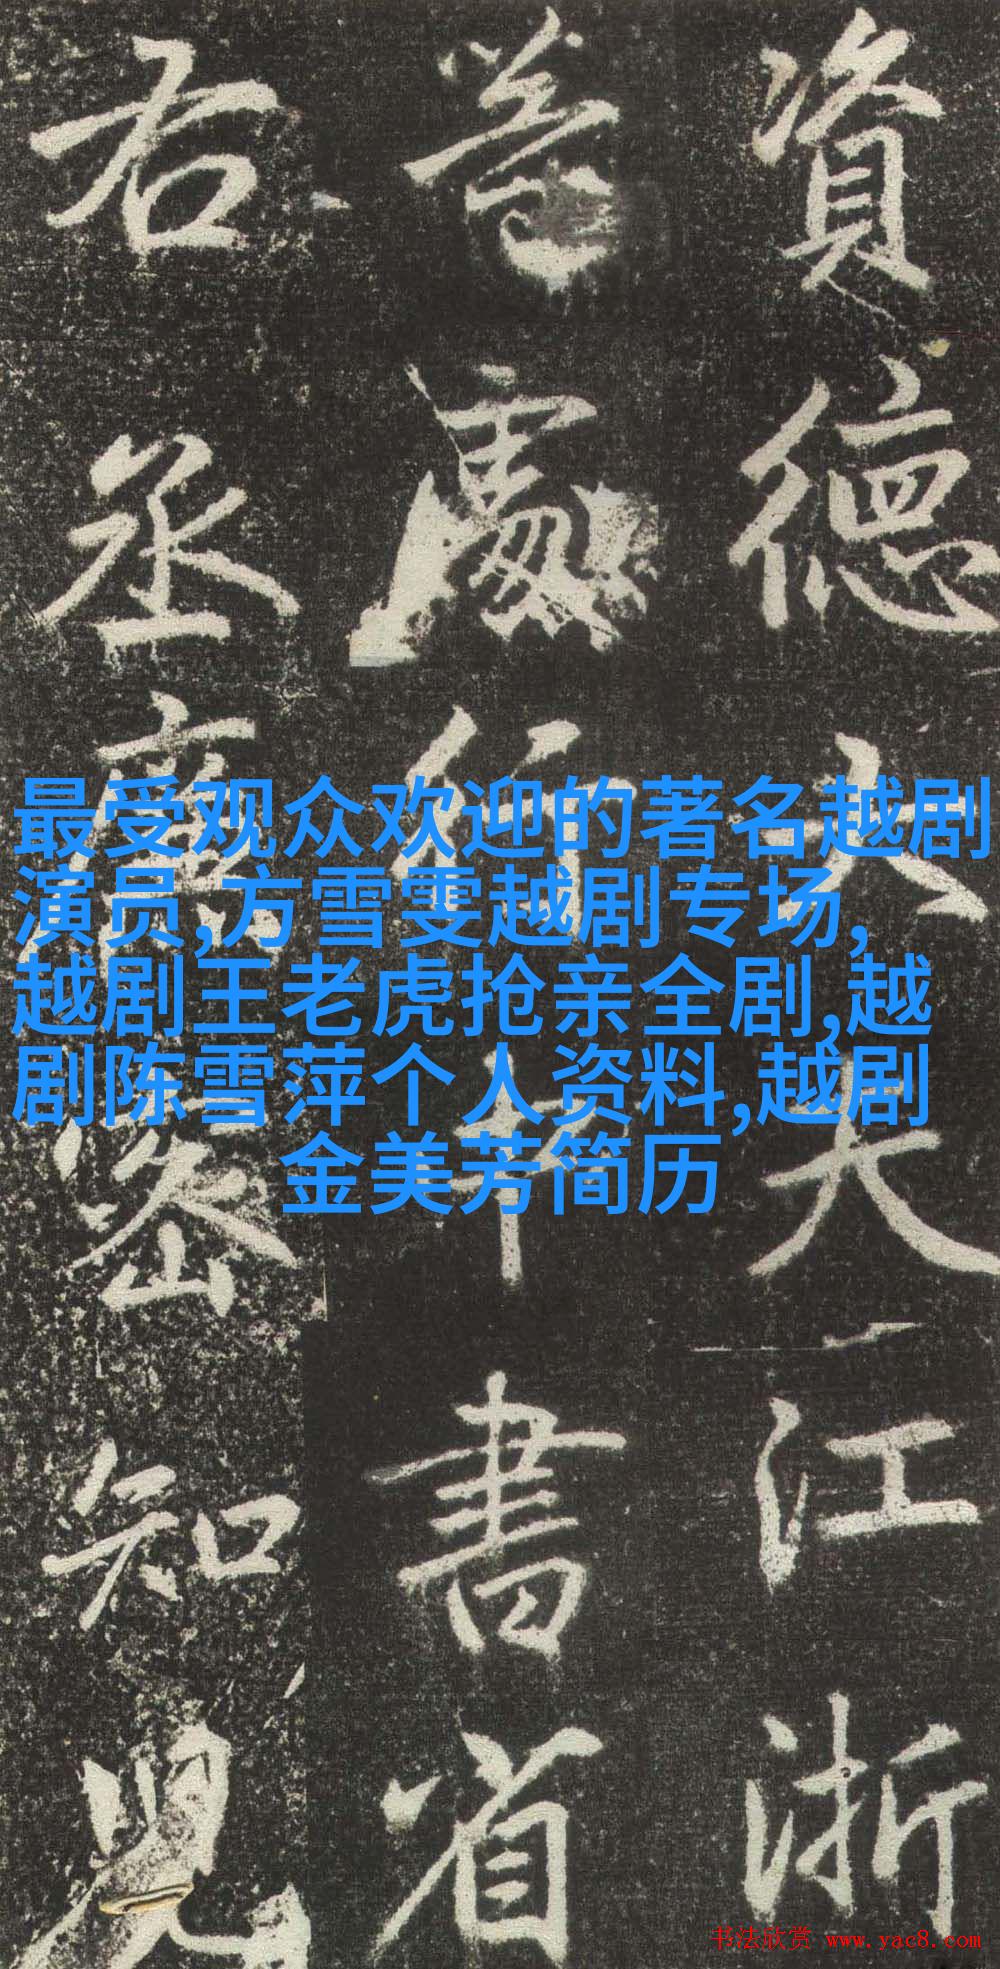 資德大夫江浙
等處行中書省
右丞廉密知兒
最受观众欢迎的著名越剧
演员,方雪雯越剧专场,
越剧王老虎抢亲全剧,越
剧陈雪萍个人资料,越剧
金美芳简历
书法欣赏 www.yac8.com